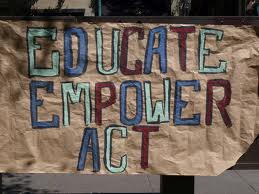 EDUCATE
EMPOWER
ACT